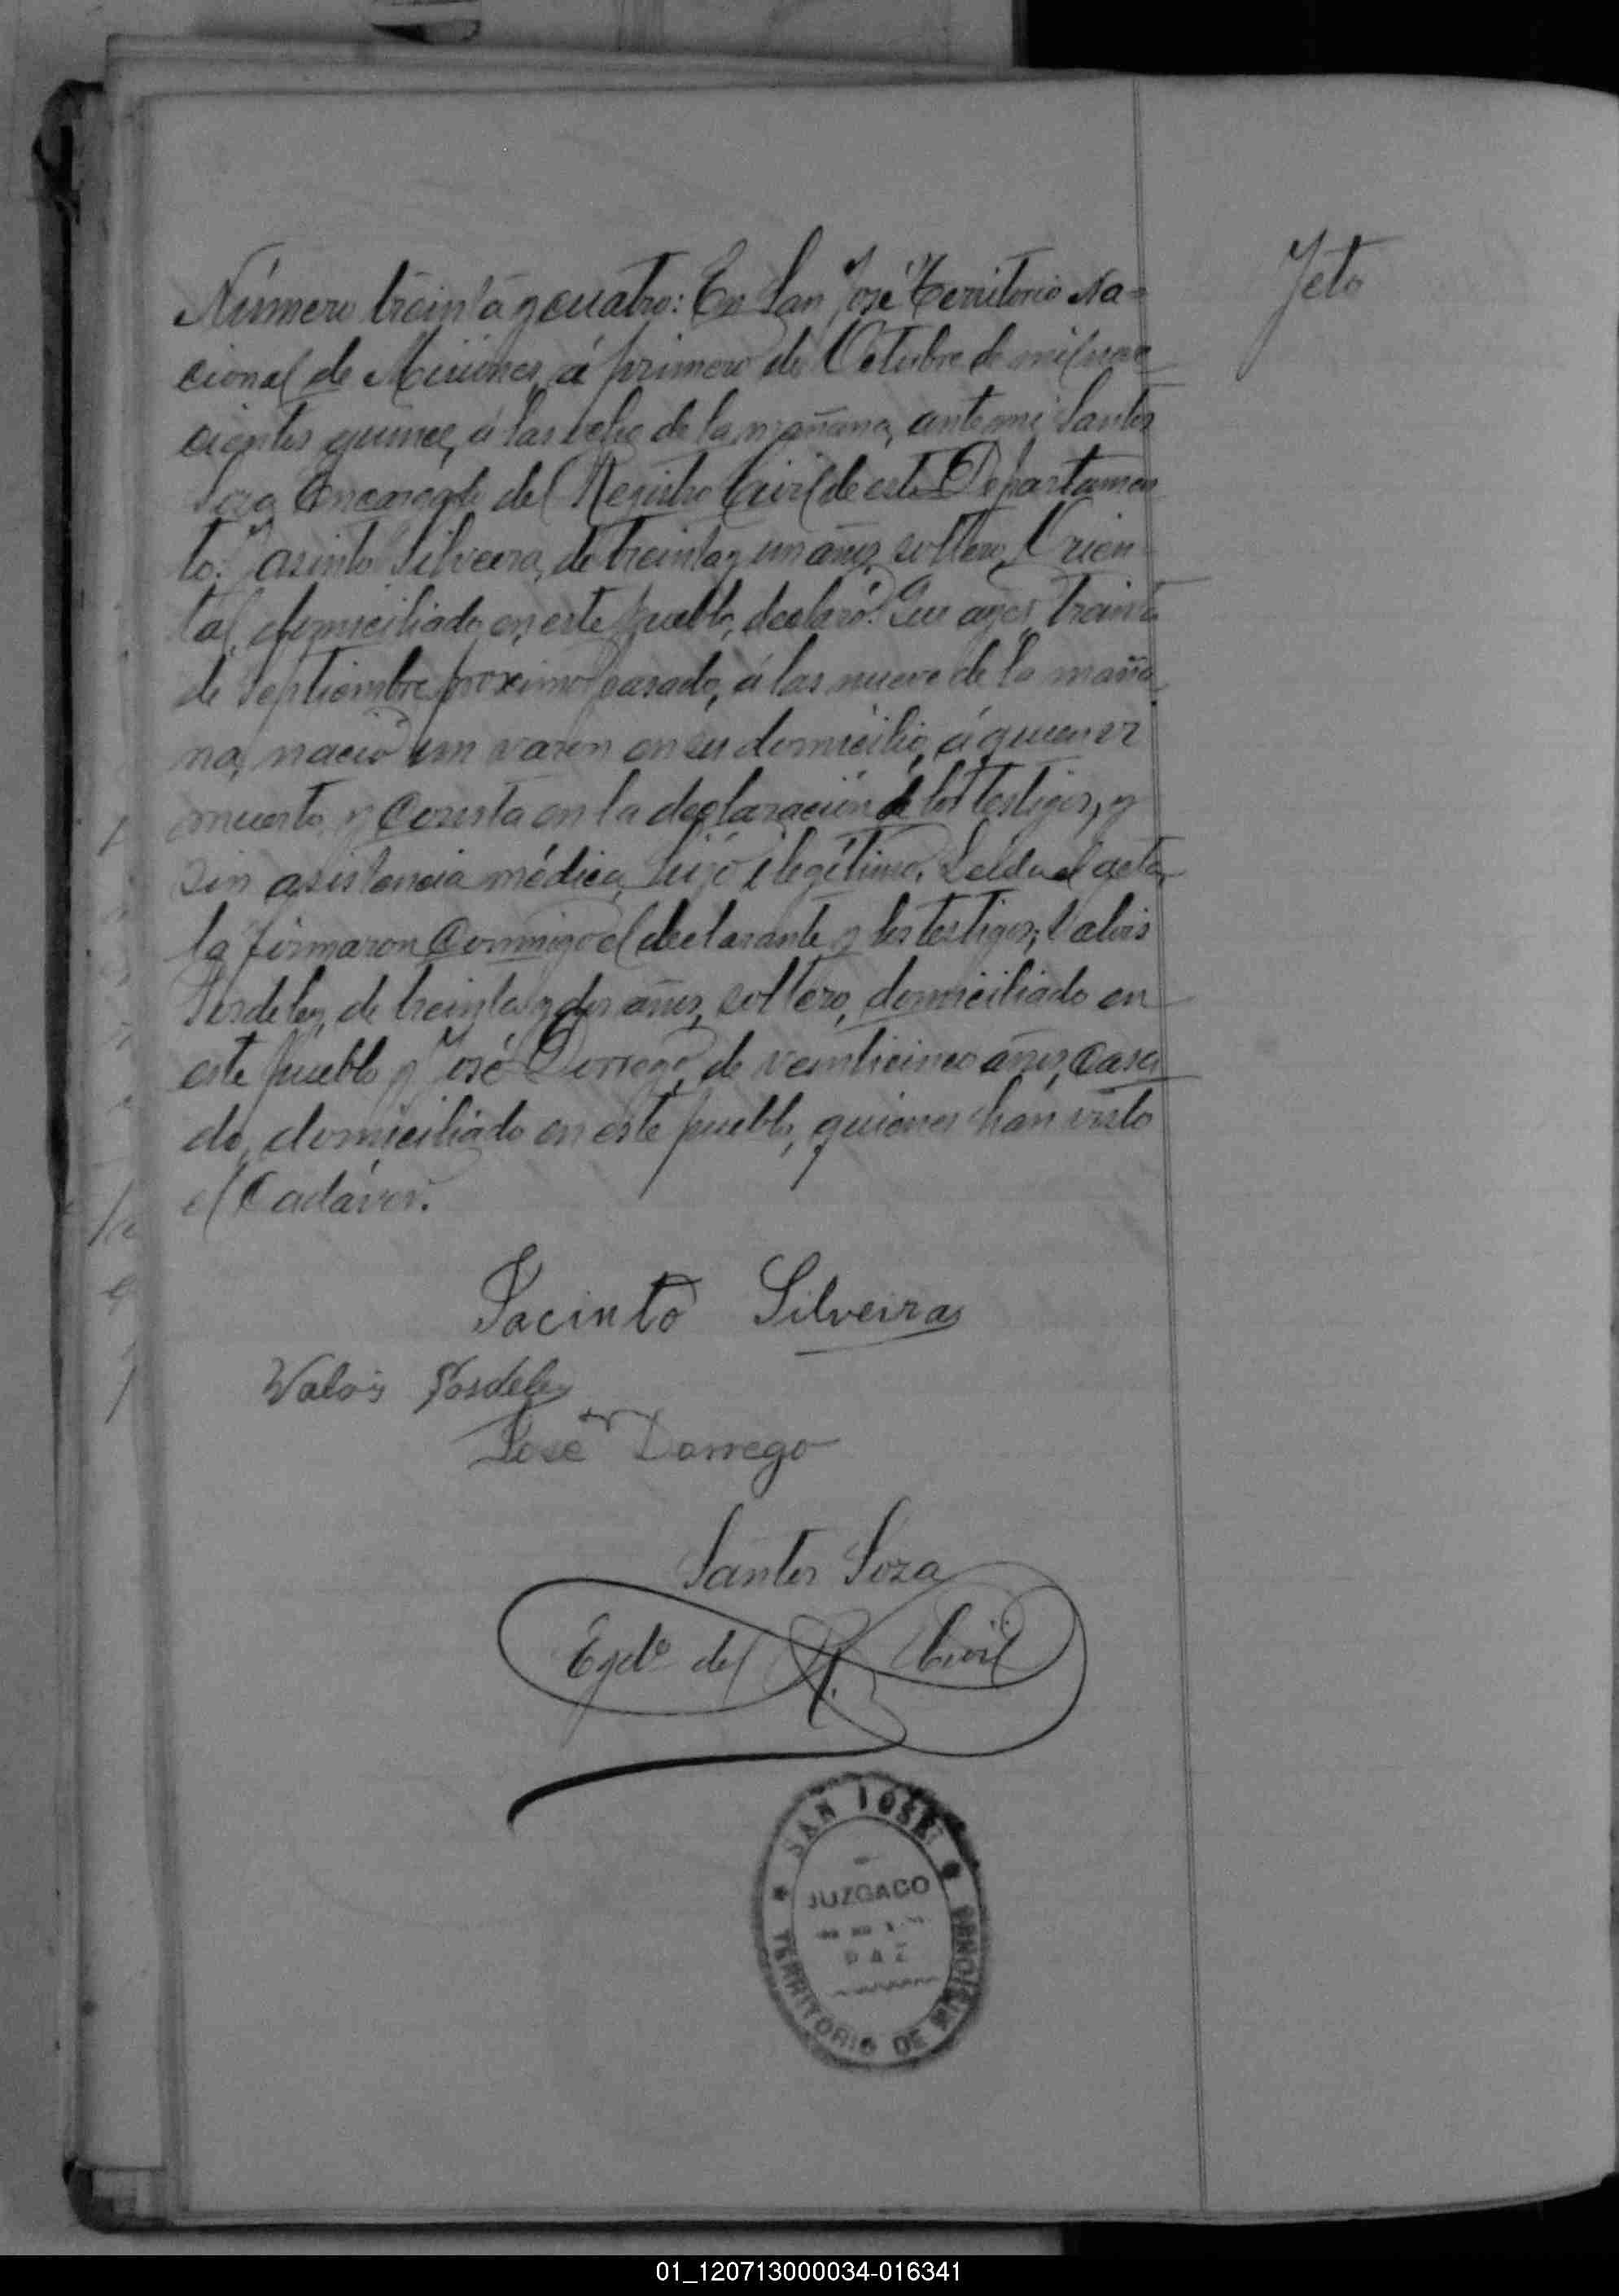 Feto
Número treinta y cuatro: En San José Territorio Na=
cional de Misiones, á primero de Octubre de mil nove
cientos quince, á las ocho de la mañana, ante mi Santos
Soza Encargado del Registro Civil de este Departamen
to: Jasinto Silveira, de treinta y un años, soltero, Orien=
tal, domiciliado en este pueblo, declaró: Que ayer treinta
de Septiembre proximo pasado, á las nueve de la maña
na, nació un varon en su domicilio, á quien
muerto, y consta en la declaración de los testigos, y
sin asistencia médica, hijo ilegítimo. Leida el acta,
la firmaron conmigo el declarante y los testigos; Valois
de treinta y dos años, soltero, domiciliado en
este pueblo y José Dorrego, de veinticinco años, casa
do, domiciliado en este pueblo, quienes han visto
el Cadáver.
Jacinto Silveira
Valois
José Dorrego
Santos Soza
Egdo del R. Civil
SAN JOSÉ
JUZGADO
PAZ
TERRITORIO DE MISIONES
01_120713000034-016341